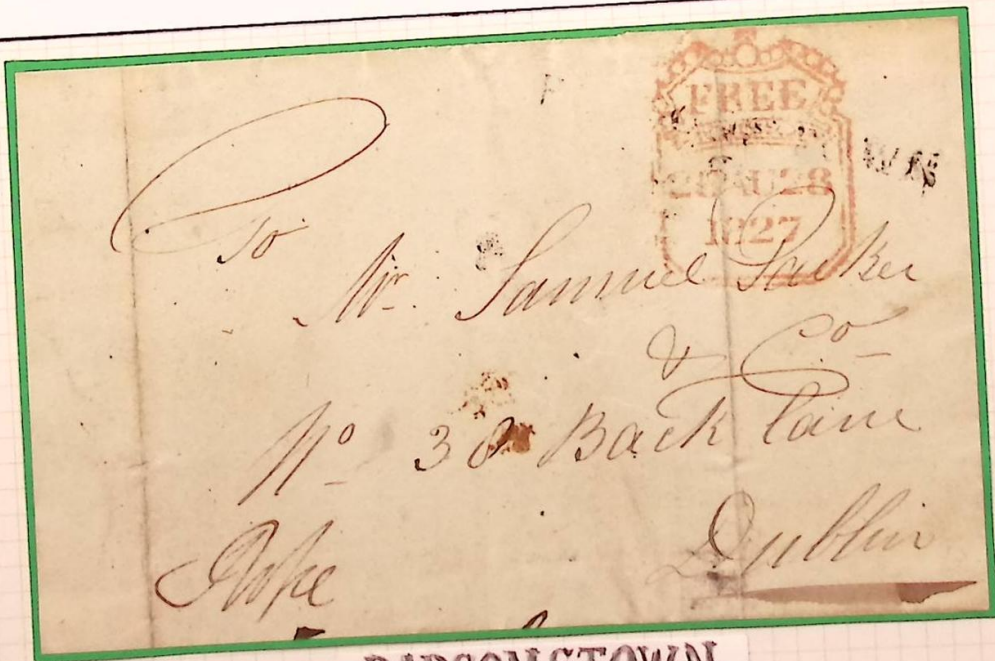 FREE
28 AU 28
1827
To
Mr. Samuel Parker
& Co
No 38 Back Lane
Dublin
PARSONSTOWN